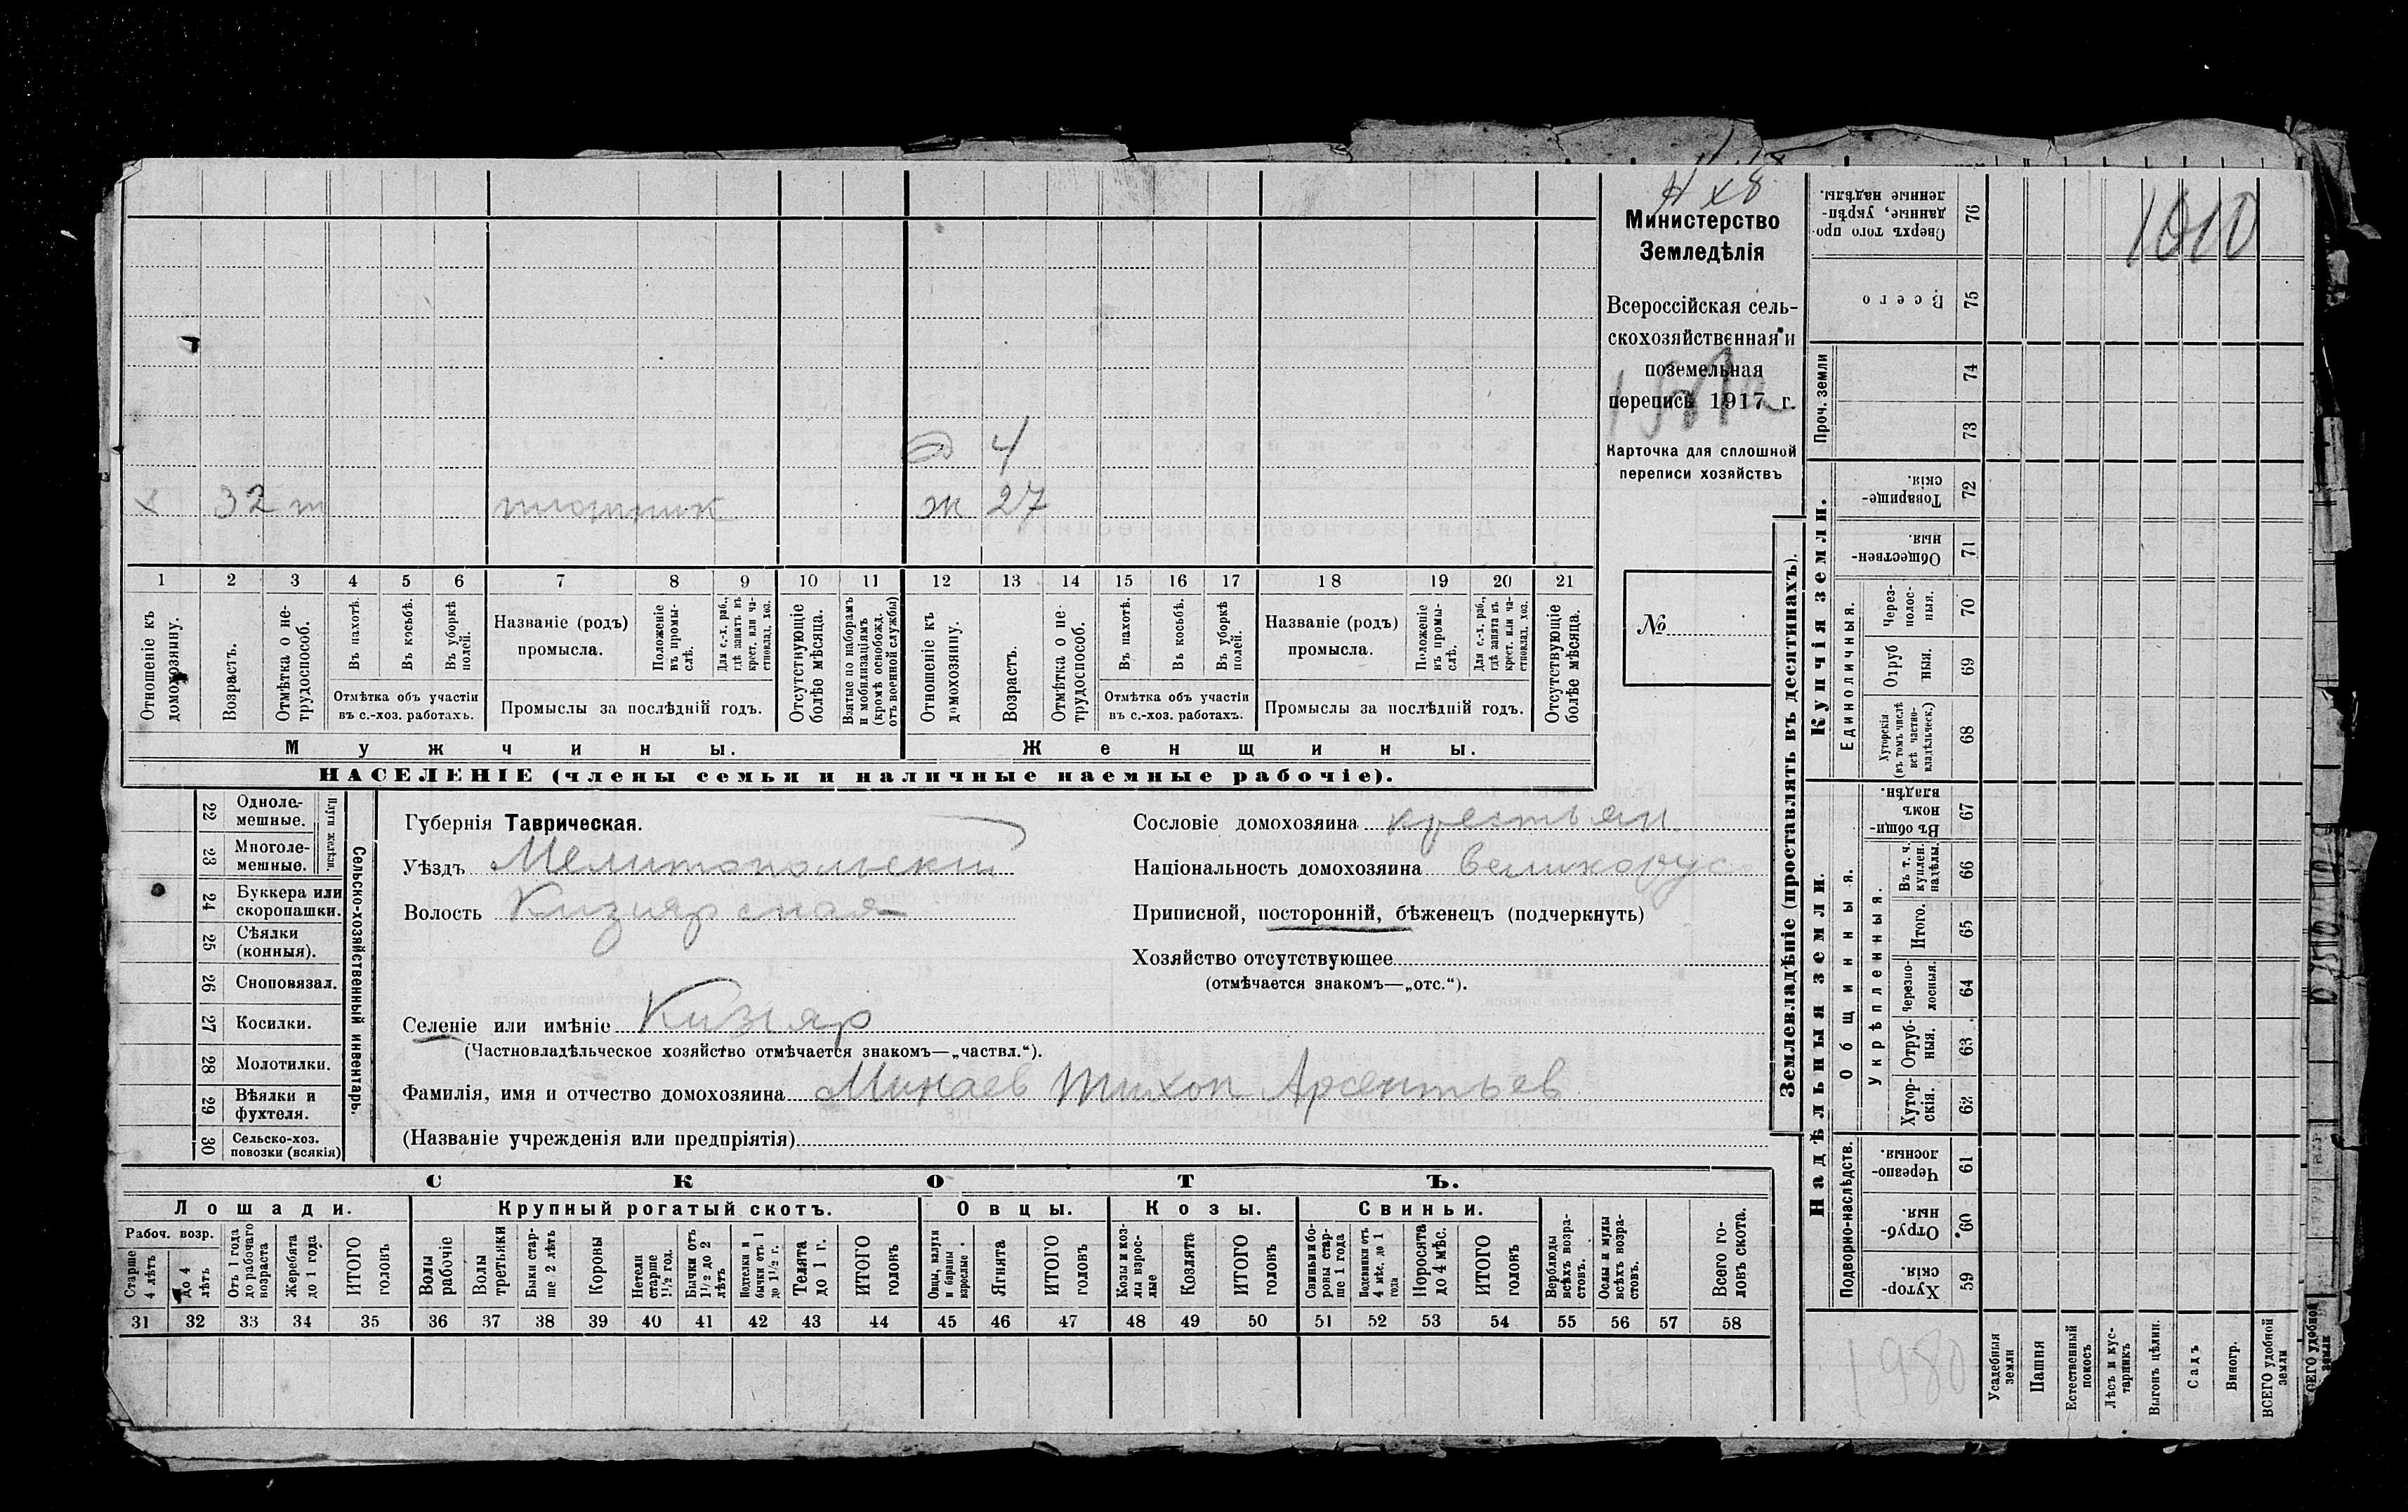 Н х 8
Министерство
Земледѣлія
Всероссійская сель-
скохозяйственная и
поземельная
перепись 1917 г.
Карточка для сплошной
переписи хозяйствъ
№
д 4
х 32 плотник ж 27
1 2 3 4 5 6 7 8 9 10 11 12 13 14 15 16 17 18 19 20 21
Отношеніе къ домохозяину.
Возрастъ.
Отмѣтка о не-трудоспособ.
Въ пахотѣ.
Въ косьбѣ.
Въ уборкѣ полей.
Отмѣтка объ участіи въ с.-хоз. работахъ.
Названіе (родъ) промысла.
Положеніе въ промы-слѣ.
Для с.-х. раб., гдѣ занятъ въ крест. или ча-стновлад. хоз.
Промыслы за послѣдній годъ.
Отсутствующіе болѣе мѣсяца.
Взятые по наборамъ и мобилизаціямъ (кромѣ освобожд. отъ военной службы)
Отношеніе къ домохозяину.
Возрастъ.
Отмѣтка о не-трудоспособ.
Въ пахотѣ.
Въ косьбѣ.
Въ уборкѣ полей.
Отмѣтка объ участіи въ с.-хоз. работахъ.
Названіе (родъ) промысла.
Положеніе въ промы-слѣ.
Для с.-х. раб., гдѣ занята въ крест. или ча-стновлад. хоз.
Промыслы за послѣдній годъ.
Отсутствующіе болѣе мѣсяца.
Мужчины. Женщины.
НАСЕЛЕНІЕ (члены семьи и наличные наемные рабочіе).
22 Одноле-мешные.
23 Многоле-мешные.
Плуги желѣзн.
24 Буккера или скоропашки.
25 Сѣялки (конныя).
26 Сноповязал.
27 Косилки.
28 Молотилки.
29 Вѣялки и фухтеля.
30 Сельско-хоз. повозки (всякія)
Сельско-хозяйственный инвентарь.
Губернія Таврическая.
Уѣздъ Мелитопольский
Волость Кизиярская
Селеніе или имѣніе Кизіяр
(Частновладѣльческое хозяйство отмѣчается знакомъ—„частвл.“).
Фамилія, имя и отчество домохозяина Минаев Тихон Арсентьев
(Названіе учрежденія или предпріятія)
Сословіе домохозяина крестьян
Національность домохозяина великорус
Приписной, посторонній, бѣженецъ (подчеркнуть)
Хозяйство отсутствующее
(отмѣчается знакомъ—„отс.“).
СКОТЪ.
Лошади. Крупный рогатый скотъ. Овцы. Козы. Свиньи.
Рабоч. возр.
Старше 4 лѣтъ
до 4 лѣтъ
Отъ 1 года до рабочаго возраста
Жеребята до 1 года
ИТОГО головъ
Волы рабочіе
Волы третьяки
Быки стар-ше 2 лѣтъ
Коровы
Нетели старше 1½ год.
Бычки отъ 1½ до 2 лѣтъ
Подтелки и бычки отъ 1 до 1½ г.
Телята до 1 г.
ИТОГО головъ
Овцы, валухи и бараны взрослые
Ягнята
ИТОГО головъ
Козы и коз-лы взрос-лые
Козлята
ИТОГО головъ
Свиньи и бо-ровы стар-ше 1 года
Подсвинки отъ 4 мѣс. до 1 года
Поросята до 4 мѣс.
ИТОГО головъ
Верблюды всѣхъ возра-стовъ.
Ослы и мулы всѣхъ возра-стовъ.
Всего го-ловъ скота.
31 32 33 34 35 36 37 38 39 40 41 42 43 44 45 46 47 48 49 50 51 52 53 54 55 56 57 58
Землевладѣніе (проставлять въ десятинахъ).
Надѣльныя земли. Купчія земли.
Проч. земли
Сверхъ того про-данные, укрѣп-ленные надѣлы. 76
Всего 75
74
73
Товарище-скія. 72
Обществен-ныя. 71
Единоличныя.
Через-полос-ныя. 70
Отруб ныя. 69
Хуторскія (въ томъ числѣ всѣ частно-владѣльческ.) 68
Общинныя.
Въ общи-номъ владѣн. 67
Укрѣпленныя.
Въ т. ч. куплен. надѣлы. 66
Итого. 65
Черезпо-лосныя. 64
Отруб-ныя. 63
Хутор-скія. 62
Подворно-наслѣдств.
Черезпо-лосныя. 61
Отруб-ныя. 60
Хутор-скія. 59
Усадебныя земли
Пашня
Естественный покосъ
Лѣсъ и кус-тарникъ
Выгонъ цѣлин.
Садъ
Виногр.
ВСЕГО удобной земли
1010
1980